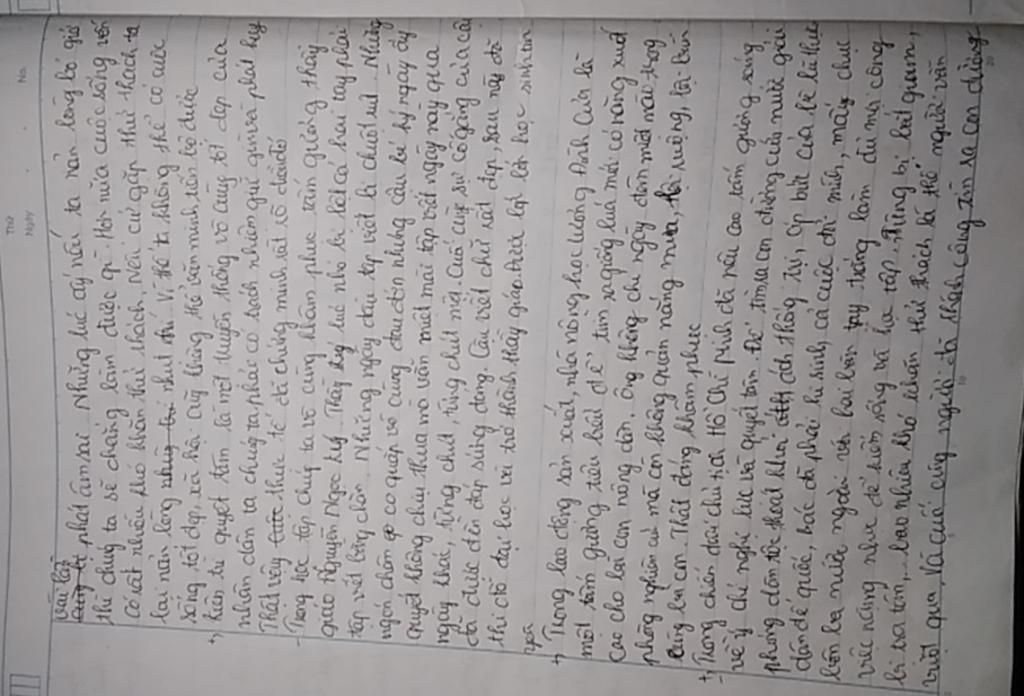 Thứ
Ngày
No.
vài lần
phát âm sai. Những lúc ấy nếu ta nản lòng bỏ giở
thì chúng ta sẽ chẳng làm được gì. Hơn nữa cuộc sống vốn
có rất nhiều khó khăn thử thách. Nếu cứ gặp thử thách ta
lại nản lòng như thế vì thế ta không thể có cuộc
sống tốt đẹp, xã hội cũng không thể văn minh, tiến bộ được
+, kiên trì quyết tâm là một truyền thống vô cùng tốt đẹp của
nhân dân ta chúng ta phải có trách nhiệm giữ gìn và phát huy
Thật vậy thực tế đã chứng minh rất rõ điều đó
- Trong học tập chúng ta vô cùng khâm phục tấm gương thầy
giáo Nguyễn Ngọc Ký. Thầy ký lúc nhỏ bị liệt cả hai tay phải
tập viết bằng chân. Những ngày đầu tập viết bị chuột rút. Những
ngón chân co quắp vô cùng đau đớn nhưng cậu bé ký ngày ấy
quyết không chịu thua mà vẫn miệt mài tập viết ngày này qua
ngày khác, từng chút, từng chút một. Cuối cùng sự cố gắng của cậu
đã được đền đáp xứng đáng. Cậu viết chữ rất đẹp, sau này đỗ
thi đỗ đại học và trở thành thầy giáo, trước lớp học sinh thân
yêu
+, Trong lao động sản xuất, nhà nông học Lương Định Của là
một tấm gương tiêu biểu để tìm ra giống lúa mới có năng xuất
cao cho lại con nông dân. ông không chỉ ngày đêm miệt mài trong
phòng nghiên cứu mà còn không quản nắng mưa, lội ruộng, lội bùn
cùng bà con. Thật đáng khâm phục
+, Trong chiến đấu chủ tịch Hồ Chí Minh đã nêu cao tấm gương sáng
về ý chí nghị lực và quyết tâm. Để tìm ra con đường cứu nước giải
phóng dân tộc thoát khỏi ách thống trị, áp bức của bè lũ thực
dân đế quốc, bác đã phải hi sinh cả cuộc đời mình, mấy chục
năm bôn ba nước ngoài với hai bàn tay trắng làm đủ mọi công
việc nặng nhọc để kiếm sống và học tập. Từng bị bắt giam,
bị tra tấn,... bao nhiêu khó khăn thử thách là thế người vẫn
vượt qua, và cuối cùng người đã thành công tìm ra con đường